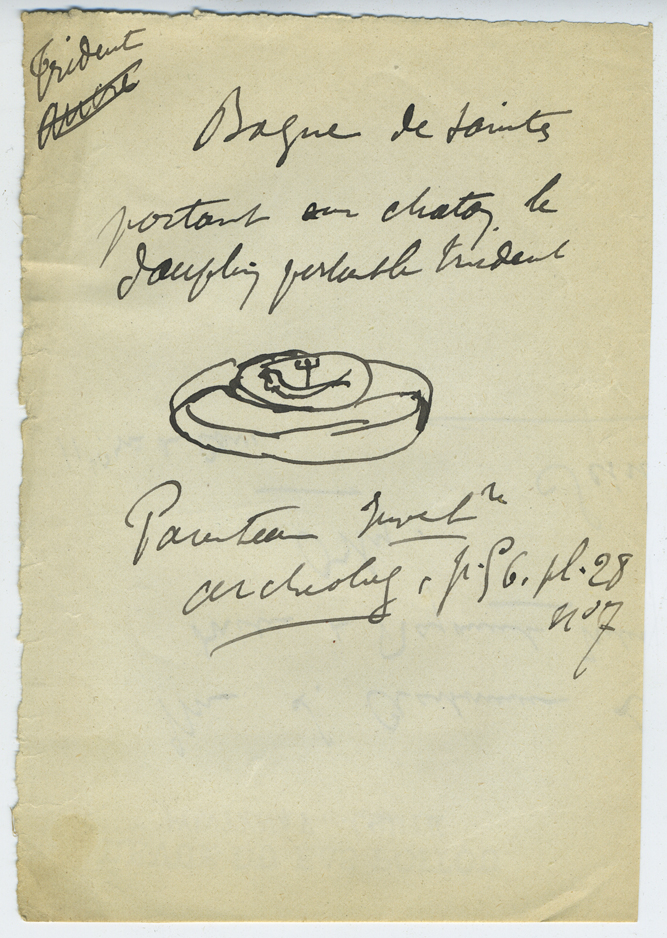 Trident
Bague de Saintes
portant au chaton le
dauphin portant le trident
Parenteau Invent re
archeolog, p. 56. pl. 28
n° 7